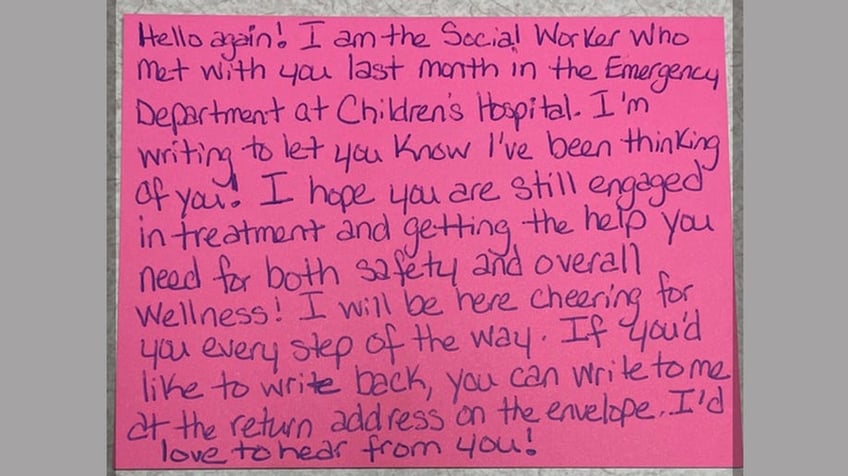 Hello again! I am the Social Worker who
met with you last month in the Emergency
Department at Children's Hospital. I'm
writing to let you know I've been thinking
of you! I hope you are still engaged
in treatment and getting the help you
need for both safety and overall
wellness! I will be here cheering for
you every step of the way. If you'd
like to write back, you can write to me
at the return address on the envelope. I'd
love to hear from you!